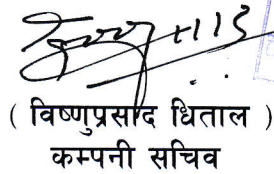 ( विष्णुप्रसाद धिताल )
कम्पनी सचिव